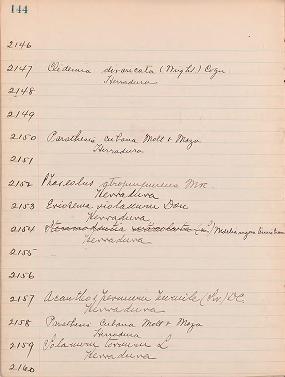 144
2146
2147 Clidemia divaricata (Wright) Cogn
Herradura
2148
2149
2150 Parathesis cubana Molt & Maza
Herradura
2151
2152 Phaseolus atropurpureus
Herradura
2153 Eriosema violaceum
Herradura
2154
Herradura
2155
2156
2157 Acanthospermum humile (Sw) DC.
Herradura
2158 Parathesis Cubana Molt & Maza
Herradura
2159 Solanum torvum L
Herradura
2160